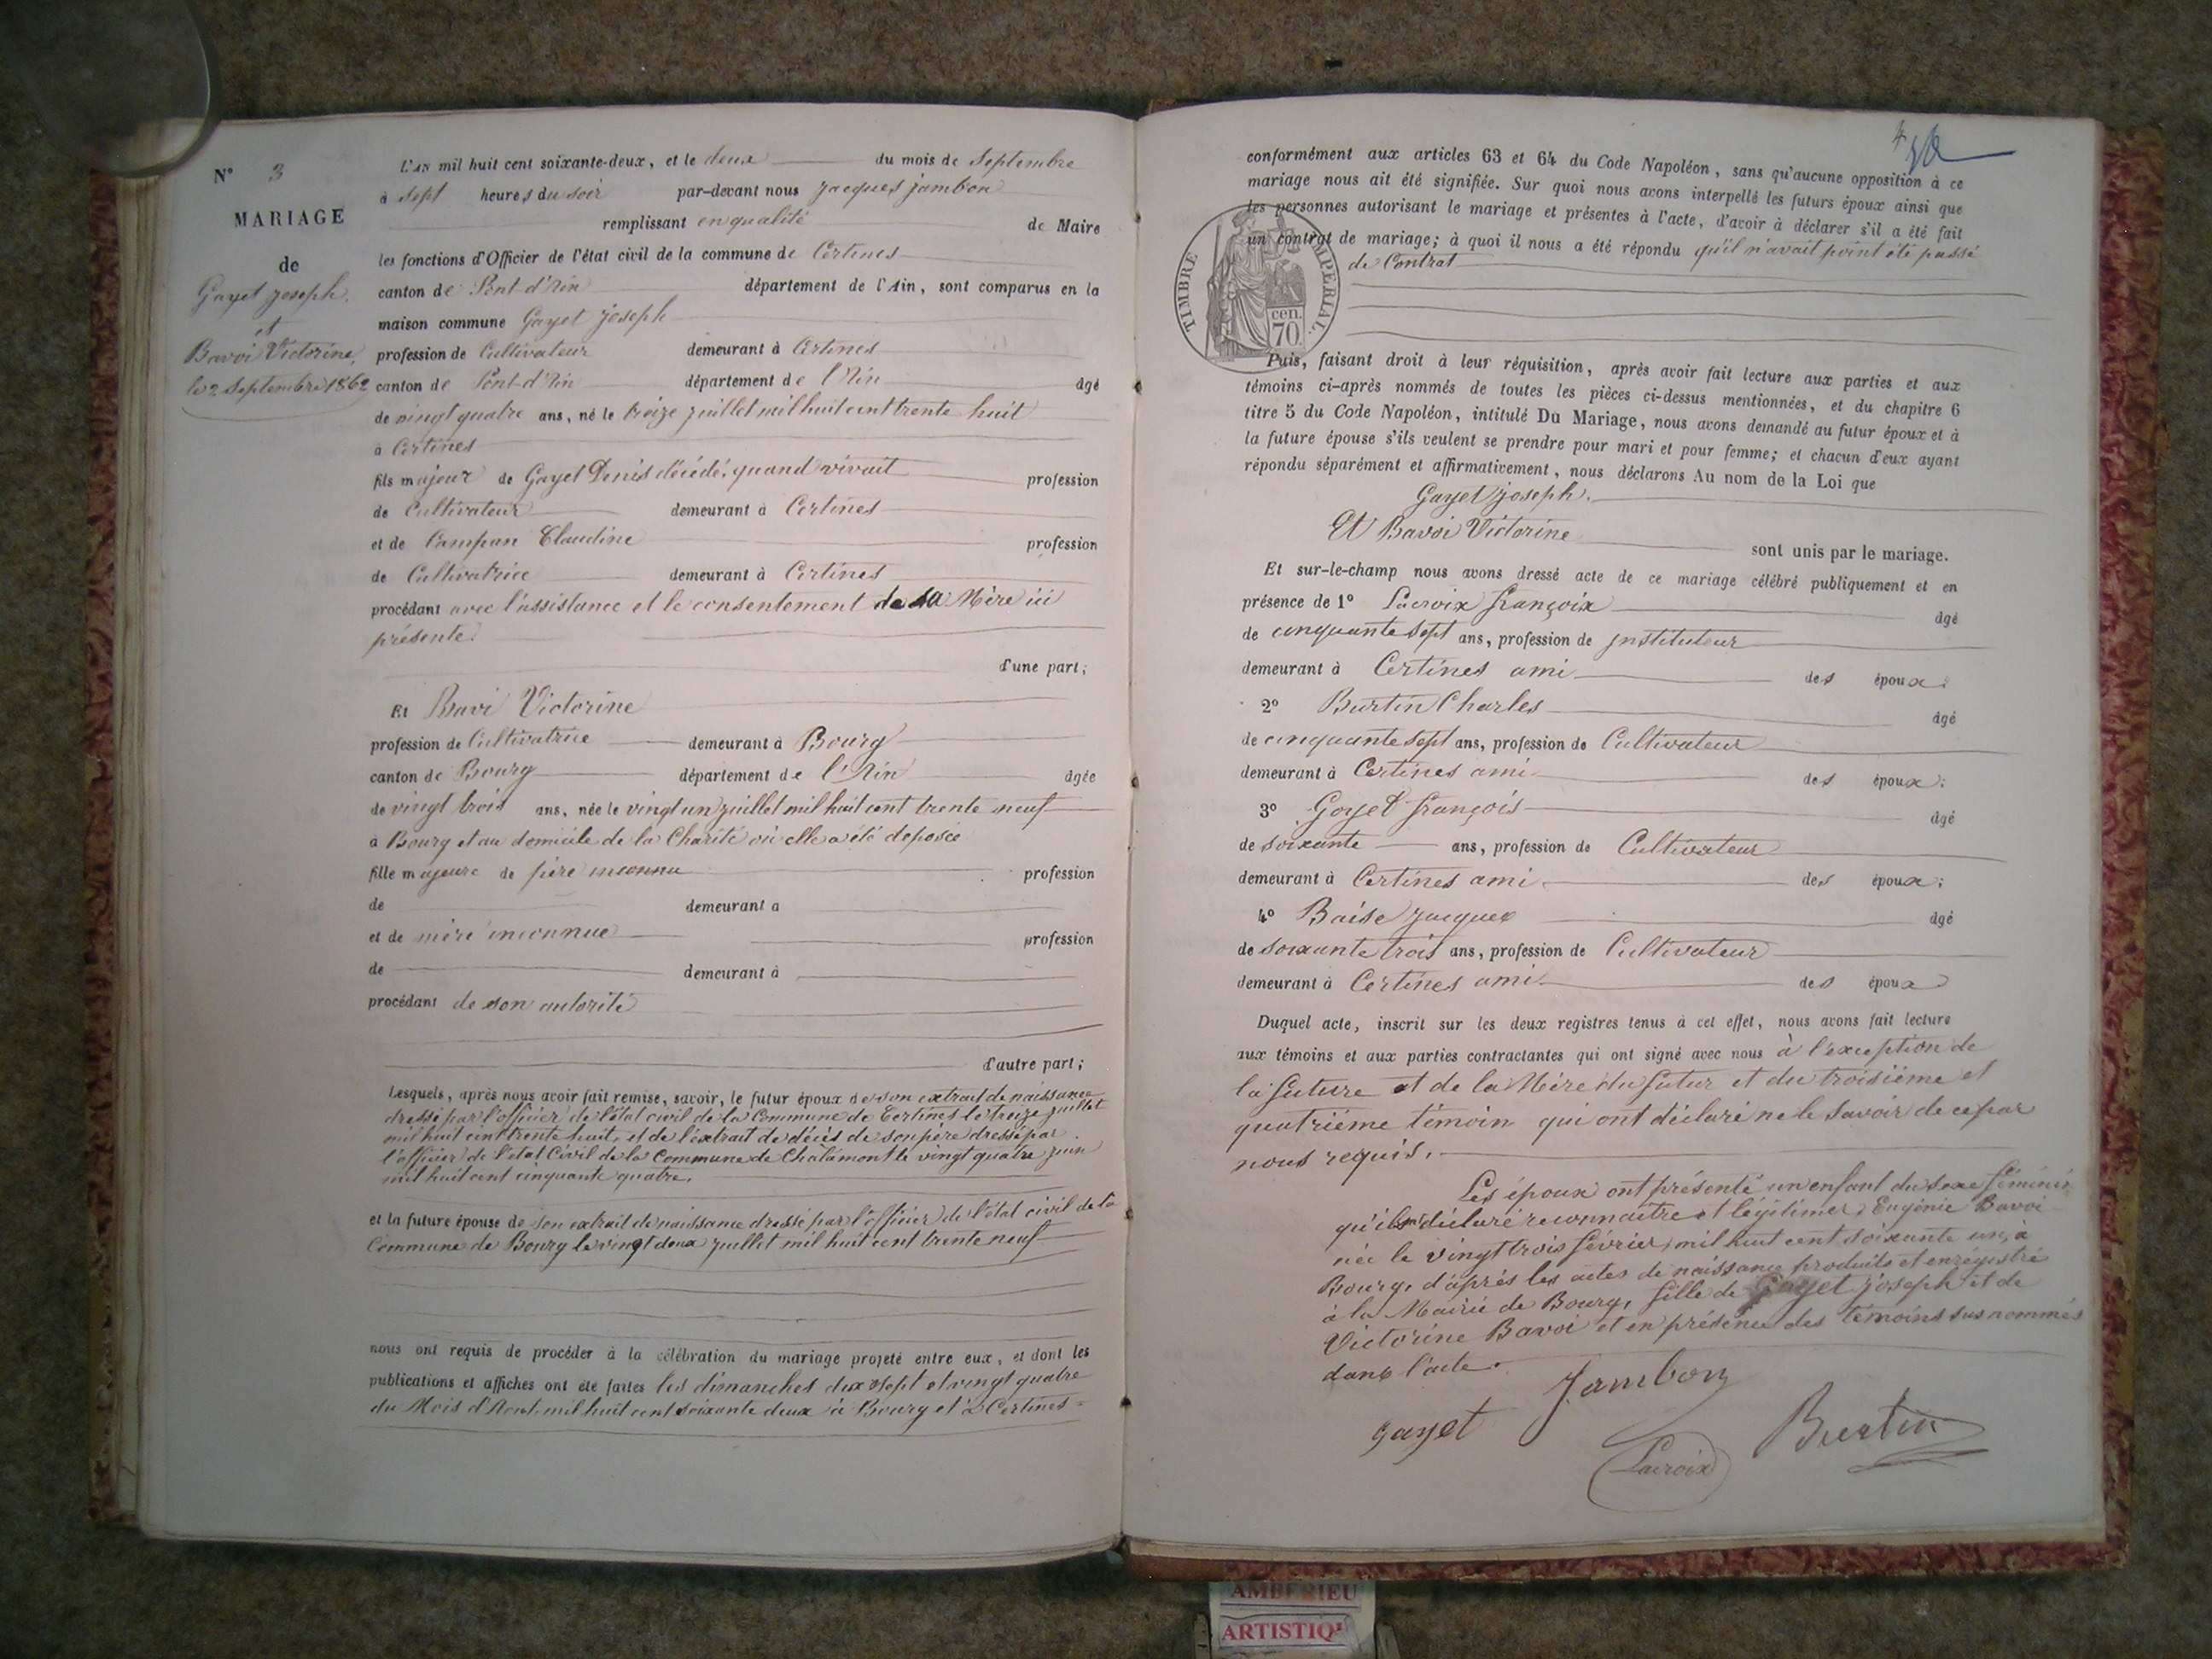 N° 3
MARIAGE
de
Gayet joseph.
et
Bavoi Victorine,
le 2 Septembre 1862
L'AN mil huit cent soixante-deux, et le deux du mois de Septembre
à sept heures du soir par-devant nous Jacques jambon
remplissant en qualité de Maire
les fonctions d'Officier de l'état civil de la commune de Certines
canton de Pont d'Ain département de l'Ain, sont comparus en la
maison commune Gayet joseph
profession de Cultivateur demeurant à Certines
canton de Pont-d'Ain département de l'Ain âgé
de vingt quatre ans, né le treize juillet mil huit cent trente huit
à Certines
fils majeur de Gayet Denis décédé. quand vivait profession
de Cultivateur demeurant à Certines
et de Campan Claudine profession
de Cultivatrice demeurant à Certines
procédant avec l'assistance et le consentement de sa Mère ici
présente.
d'une part;
Et Bavi Victorine
profession de Cultivatrice demeurant à Bourg
canton de Bourg département de l'Ain âgée
de vingt trois ans, née le vingt un juillet mil huit cent trente neuf
à Bourg et au domicile de la Charité où elle a été déposée
fille majeure de père inconnu profession
de demeurant a
et de mère inconnue profession
de demeurant à
procédant de son autorité
d'autre part;
Lesquels, après nous avoir fait remise, savoir, le futur époux de son extrait de naissance
dressé par l'officier de l'état civil de la Commune de Certines le treize juillet
mil huit cent trente huit, et de l'extrait de décès de son père dressé par
l'officier de l'état Civil de la Commune de Chalamont le vingt quatre juin
mil huit cent cinquante quatre.
et la future épouse de son extrait de naissance dressé par l'officier de l'état civil de la
Commune de Bourg le vingt deux juillet mil huit cent trente neuf
nous ont requis de procéder à la célébration du mariage projeté entre eux, et dont les
publications et affiches ont été faites les dimanches dix sept et vingt quatre
du Mois d'Aout mil huit cent soixante deux à Bourg et à Certines =
4
conformément aux articles 63 et 64 du Code Napoléon, sans qu'aucune opposition à ce
mariage nous ait été signifiée. Sur quoi nous avons interpellé les futurs époux ainsi que
les personnes autorisant le mariage et présentes à l'acte, d'avoir à déclarer s'il a été fait
un contrat de mariage; à quoi il nous a été répondu qu'il n'avait point été passé
de Contrat
TIMBRE IMPÉRIAL.
cen.
70
Puis, faisant droit à leur réquisition, après avoir fait lecture aux parties et aux
témoins ci-après nommés de toutes les pièces ci-dessus mentionnées, et du chapitre 6
titre 5 du Code Napoléon, intitulé Du Mariage, nous avons demandé au futur époux et à
la future épouse s'ils veulent se prendre pour mari et pour femme; et chacun d'eux ayant
répondu séparément et affirmativement, nous déclarons Au nom de la Loi que
Gayet joseph.
Et Bavoi Victorine
sont unis par le mariage.
Et sur-le-champ nous avons dressé acte de ce mariage célébré publiquement et en
présence de 1° Lacroix françoix âgé
de cinquante sept ans, profession de instituteur
demeurant à Certines ami des époux:
2° Burtin Charles âgé
de cinquante sept ans, profession de Cultivateur
demeurant à Certines ami des époux:
3° Goyet françois âgé
de soixante ans, profession de Cultivateur
demeurant à Certines ami des époux;
4° Baise jacques âgé
de soixante trois ans, profession de Cultivateur
demeurant à Certines ami des époux
Duquel acte, inscrit sur les deux registres tenus à cet effet, nous avons fait lecture
aux témoins et aux parties contractantes qui ont signé avec nous à l'exception de
la future et de la Mère du futur et du troisième et
quatrième témoin qui ont déclaré ne le savoir de ce par
nous requis.
Les époux ont présenté un enfant du sexe féminin
qu'ils ont déclaré reconnaitre et légitimer, Eugénie Bavoi
née le vingt trois février mil huit cent soixante un, à
Bourg, d'après les actes de naissance produits et enrégistré
à la Mairie de Bourg, fille de Gayet joseph et de
Victorine Bavoi et en présence des témoins sus nommés
dans l'acte.
Jambon
gayet
Lacroix
Burtin
AMBERIEU
ARTISTIQ